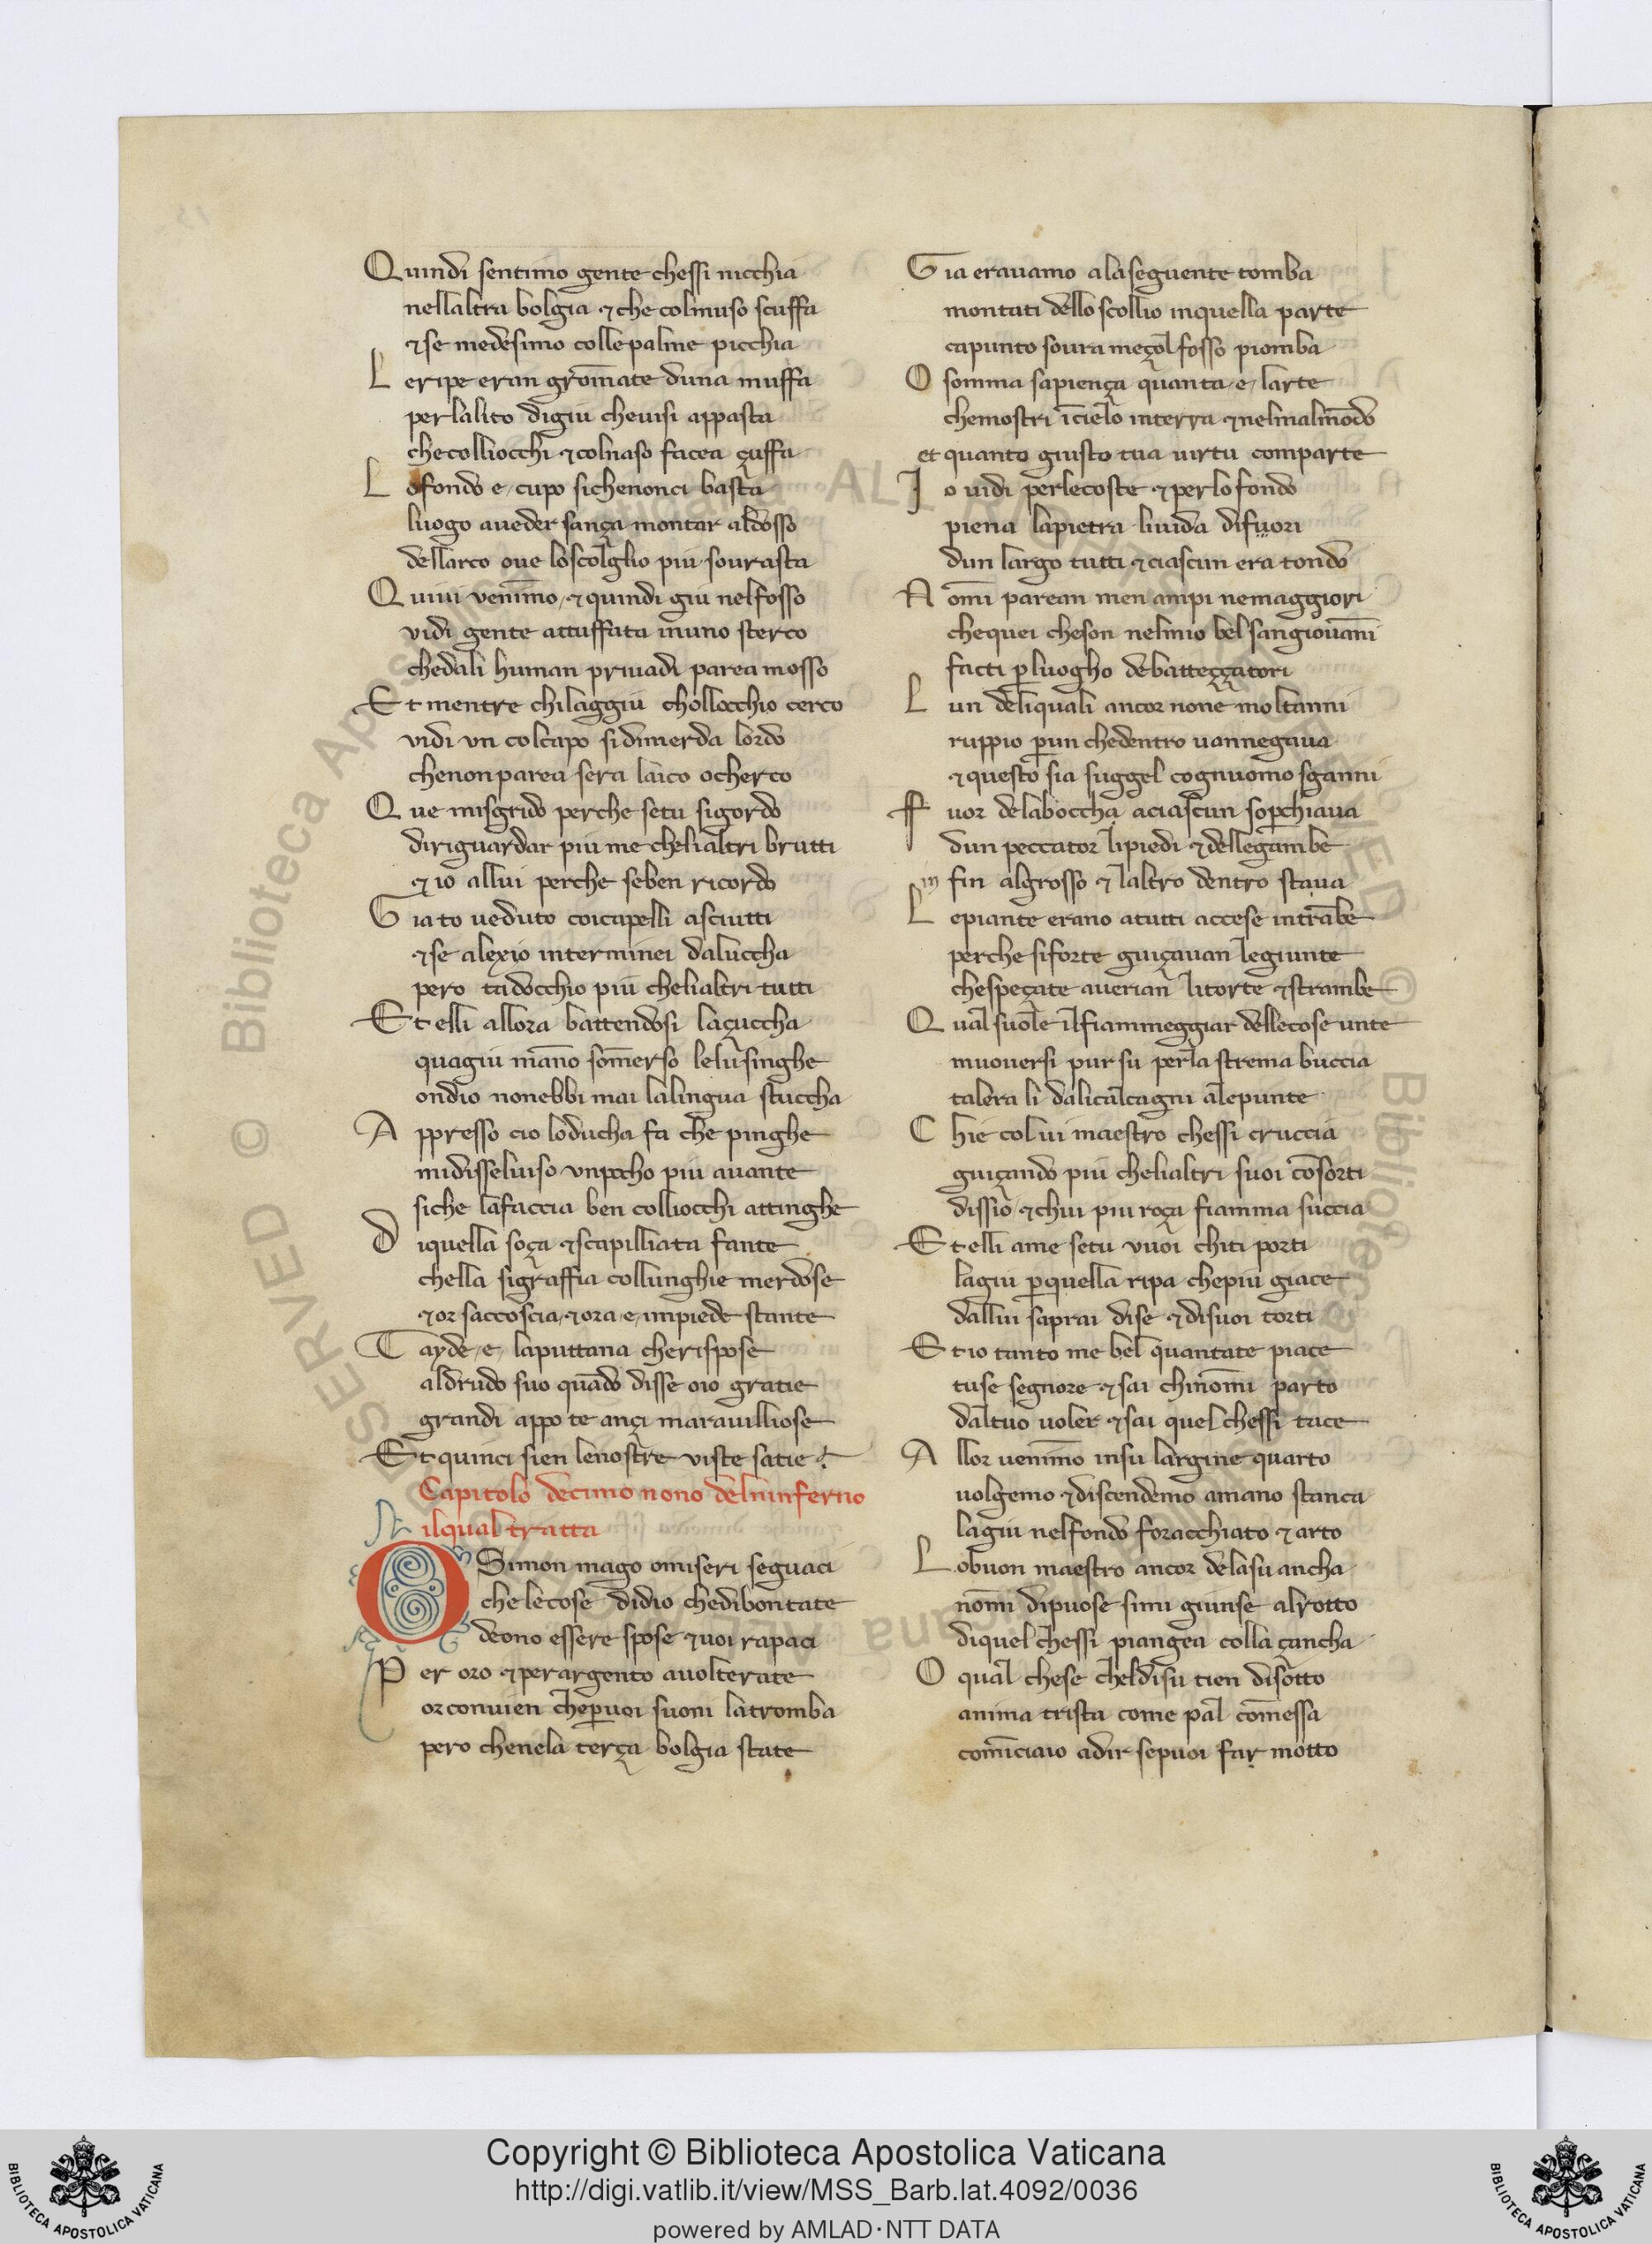 Quindi sentimo gente chessi nicchia
nellaltra bolgia ⁊ che colmuso scuffa
⁊ se medesimo collepalme picchia
Leripe eran grōmate duna muffa
perlalito digiu chevisi appasta
checolliocchi ⁊ colnaso facea çuffa
Lofondo e cupo sichenonci basta
luogo aueder sança montar aldosso
dellarco oue loscolglio piu sourasta
Quiui venīmo ⁊ quindi giu nelfosso
vidi gente attuffata inuno sterco
chedali human priuadi parea mosso
Et mentre chilaggiu chollocchio cerco
vidi vn colcapo sidimerda lordo
chenonparea sera laico ocherco
Que misgrido perche setu sigordo
diriguardar piu me chelialtri brutti
⁊ io allui perche seben ricordo
Gia to ueduto coicapelli asciutti
⁊ se alexio interminei daluccha
pero tadocchio piu chelialtri tutti
Et elli allora battendosi laçuccha
quagiu māno sōmerso lelusinghe
ondio nonebbi mai lalingua stuccha
Appresso cio loducha fa che pinghe
midisseluiso vnpocho piu auante
siche lafaccia ben colliocchi attinghe
Diquella soça ⁊ scapilliata fante
chella sigraffia collunghie merdose
⁊ or saccoscia ⁊ ora e impiede stante
Tayde e laputtana cherispose
aldrudo suo quādo disse oio gratie
grandi appo te ançi marauilliose
Et quinci sien lenostre viste satie
Capitolo decimo nono delninferno
ilqual tratta
O Simon mago omiseri seguaci
che lecose didio chedibontate
deono essere spose ⁊ uoi rapaci
Per oro ⁊ perargento auolterate
orconuien cheꝑuoi suoni latromba
pero chenela terça bolgia state
Gia erauamo alaseguente tomba
montati dello scollio inquella parte
capunto soura meçolfosso piomba
O somma sapiença quanta e larte
chemostri īcielo interra ⁊ nelmalmōdo
et quanto giusto tua uirtu comparte
Io uidi perlecoste ⁊ perlofondo
piena lapietra liuida difuori
dun largo tutti ⁊ ciascun era tondo
Nomi parean men ampi nemaggiori
chequei cheson nelmio bel sangiouāni
facti ꝑluogho debatteççatori
Lun deliquali ancor none moltanni
ruppio ꝑun chedentro uannegaua
⁊ questo sia suggel cognuomo sganni
Fuor delaboccha aciascun soꝑchiaua
dun peccator lipiedi ⁊ dellegambe
infin algrosso ⁊ laltro dentro staua
Lepiante erano atutti accese intrābe
perche siforte guiçauan legiunte
chespeçate auerian litorte ⁊ strambe
Qual suole ilfiammeggiar dellecose unte
muouersi pur su perla strema buccia
talera li dalicalcagni alepunte
Chie colui maestro chessi cruccia
guiçando piu chelialtri suoi cōsorti
dissio ⁊ chui piu roça fiamma succia
Et elli ame setu vuoi chiti porti
lagiu ꝑquella ripa chepiu giace
dallui saprai dise ⁊ disuoi torti
Et io tanto me bel quantate piace
tuse segnore ⁊ sai chinōmi parto
daltuo uoler ⁊ sai quel chessi tace
Allor uenimo insu largine quarto
uolgemo ⁊ discendemo amano stanca
lagiu nelfondo foracchiato ⁊ arto
Lobuon maestro ancor delasu ancha
nōmi dipuose simi giunse alrotto
diquel chessi piangea colla çancha
O qual chese cheldisu tien disotto
anima trista come pal cōmessa
comīciaio adir sepuoi far motto
Copyright © Biblioteca Apostolica Vaticana
http://digi.vatlib.it/view/MSS_Barb.lat.4092/0036
powered by AMLAD·NTT DATA